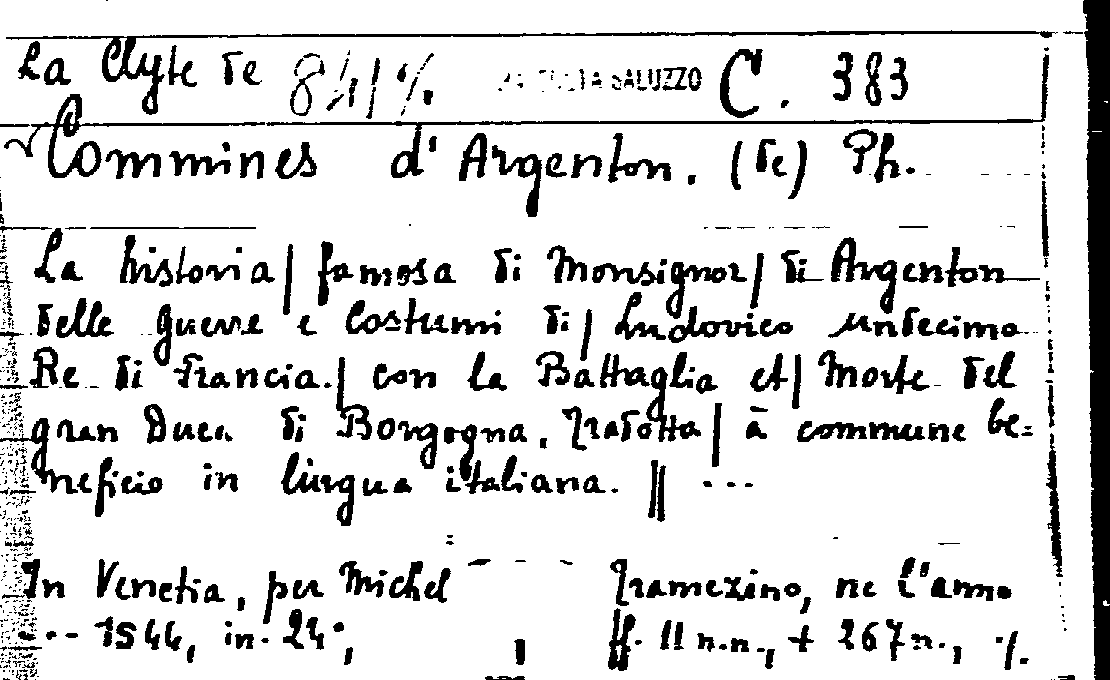 La Clyte de 841% RACCOLTA SALUZZO C. 383
Commines d'Argenton. (de) Ph.
La historia | famosa di Monsignor | di Argenton
delle guerre e costumi di | Ludovico undecimo
Re di Francia. | con la Battaglia et | Morte del
gran Duca di Borgogna. Tradotta | à commune be=
neficio in lingua italiana. || ...
In Venetia, per Michel Tramezino, ne l'anno
--- 1544, in. 24°, ff. 11 n.n., + 267 n., %.